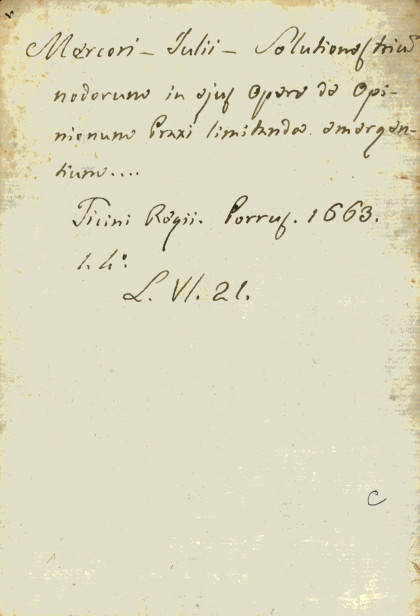 Marcori - Julii - Solutiones triū
nodorum in ejus Opere de Opi-
nionum Praxi limitanda emergen-
tium....
Ticini Regii. Porrus. 1663.
1. 4°.
L. VI. 21.
C